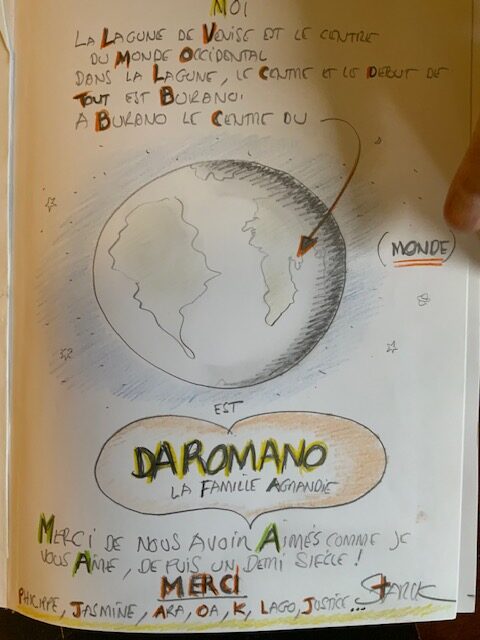 MOI
LA LAGUNE DE VENISE EST LE CENTRE
DU MONDE OCCIDENTAL
DANS LA LAGUNE, LE CENTRE ET LE DEBUT DE
TOUT EST BURANO.
A BURANO LE CENTRE DU
(MONDE)
EST
DA ROMANO
LA FAMILLE AGRANDIE
MERCI DE NOUS AVOIR AIMÉS COMME JE
VOUS AIME, DEPUIS UN DEMI SIÈCLE!
MERCI
PHILIPPE, JASMINE, ARA, OA, K, LAGO, JUSTICE... STARCK